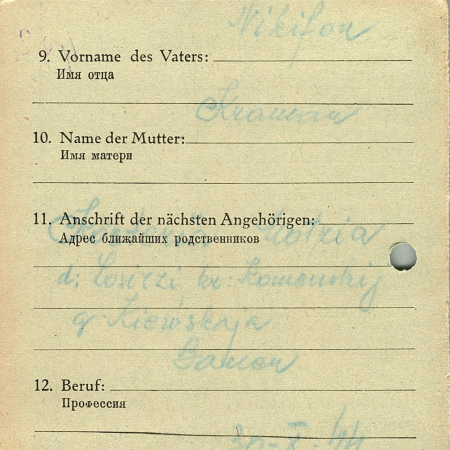 Nikifor
9. Vorname des Vaters:
Имя отца
10. Name der Mutter:
Имя матери
11. Anschrift der nächsten Angehörigen:
Адрес ближайших родственников
Motria
d:
kr:
g. Kiewskaja
12. Beruf:
Профессия
30-X-44